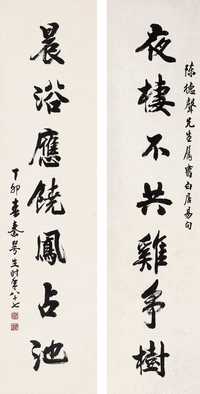 陳德聲先生屬書白居易句
夜棲不共雞爭樹
晨浴應饒鳳占池
丁卯春秦咢生时年八十七